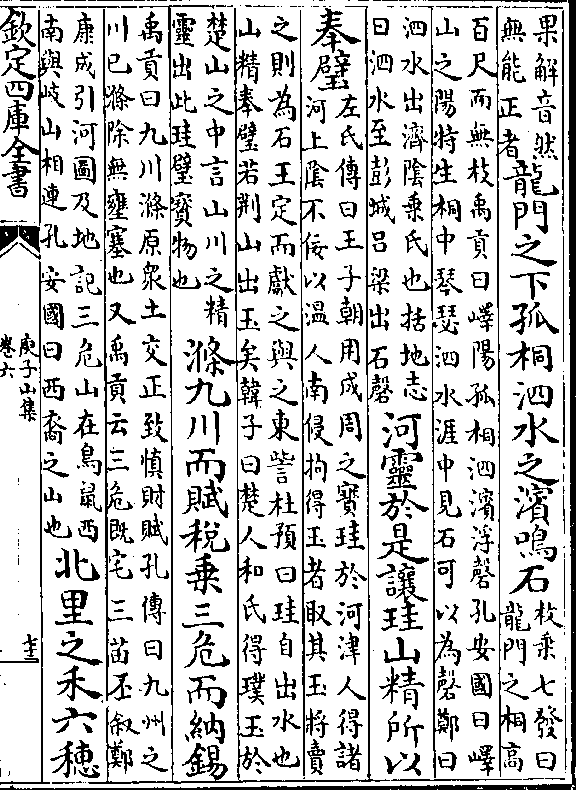 果解音然
無能正者
龍門之下孤桐泗水之濱鳴石
枚乗七發曰
龍門之桐高
百尺而無枝禹貢曰嶧陽孤桐泗濱浮磬孔安國曰嶧
山之陽特生桐中琴瑟泗水涯中見石可以為磬鄭曰
泗水出濟陰乗氏也括地志
曰泗水至彭城吕梁出石磬
河靈於是讓珪山精所以
奉璧
左氏傳曰王子朝用成周之寳珪於河津人得諸
河上陰不佞以温人南侵拘得玉者取其玉將賣
之則為石王定而獻之與之東訾杜預曰珪自出水也
山精奉璧若荆山出玉矣韓子曰楚人和氏得璞玉於
楚山之中言山川之精
靈出此珪璧寳物也
滌九川而賦稅乗三危而納錫
禹貢曰九川滌原衆土交正致慎財賦孔傳曰九州之
川已滌除無壅塞也又禹貢云三危既宅三苗丕叙鄭
康成引河圖及地記三危山在鳥鼠西
南與岐山相連孔安國曰西裔之山也
北里之禾六穂
欽定四庫全書
庾子山集
卷六